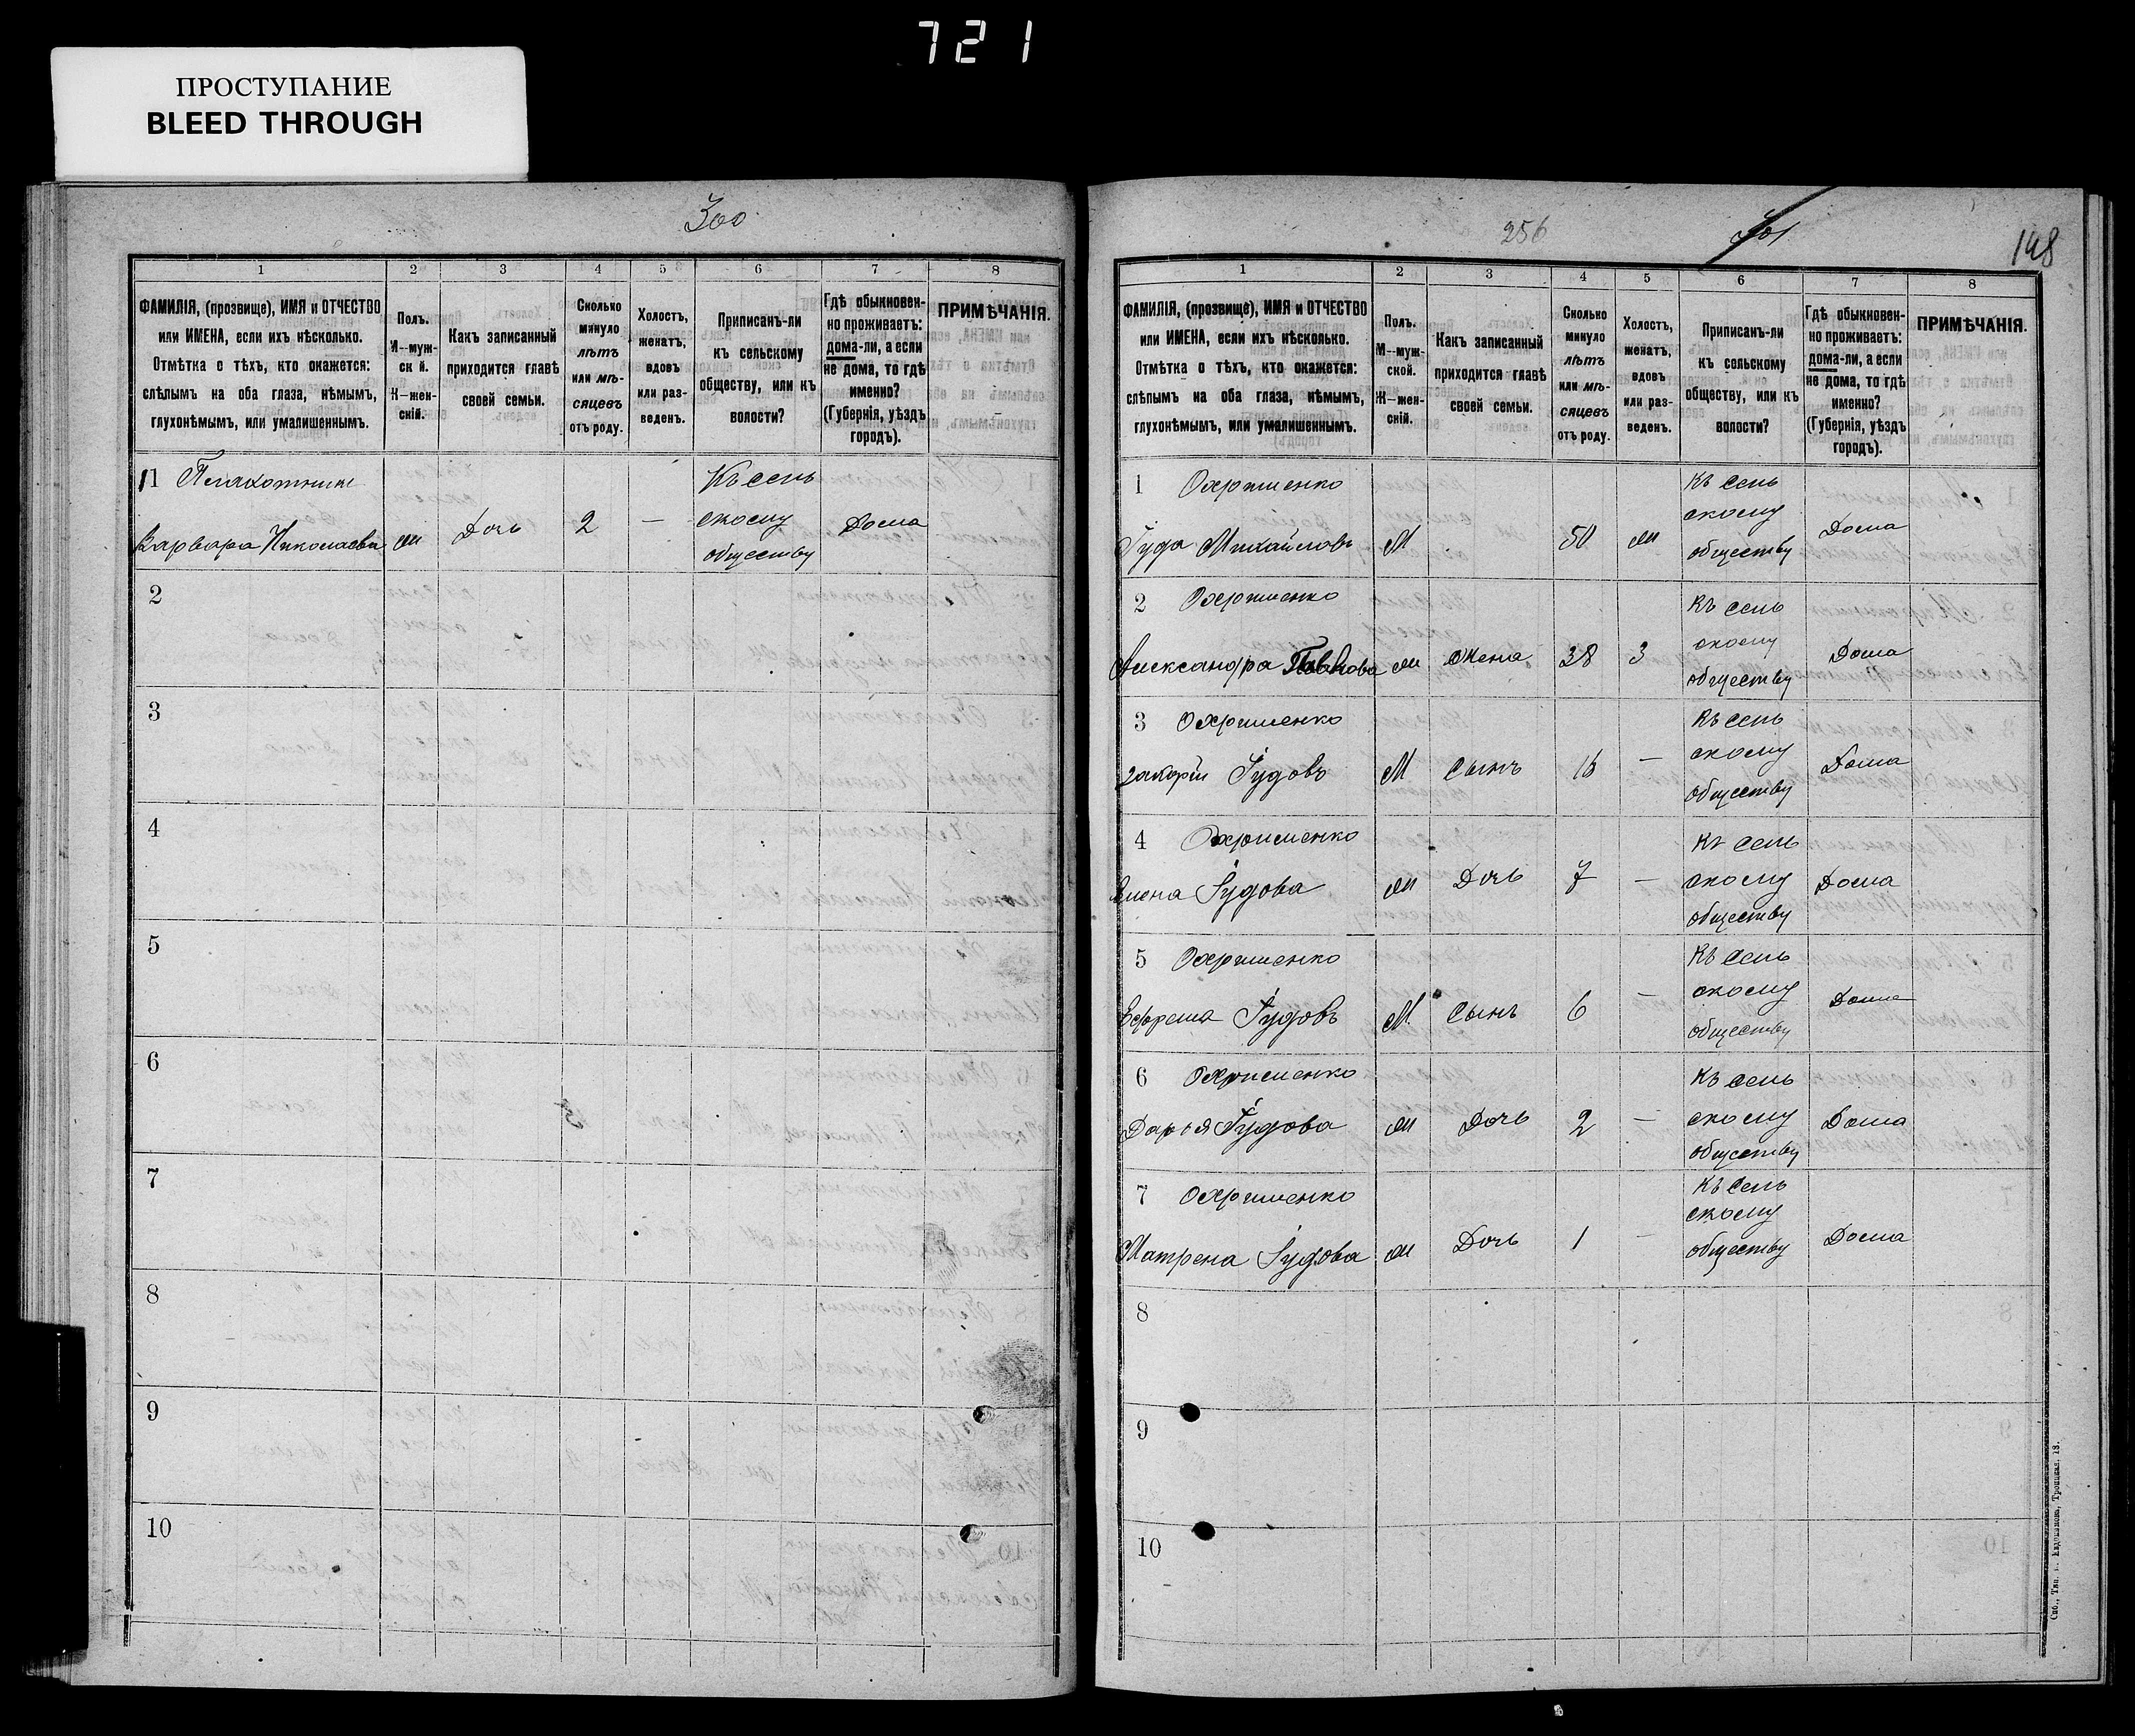 721
ПРОСТУПАНИЕ
BLEED THROUGH
300
1 2 3 4 5 6 7 8
ФАМИЛІЯ, (прозвище), ИМЯ и ОТЧЕСТВО
или ИМЕНА, если ихъ нѣсколько.
Отмѣтка о тѣхъ, кто окажется:
слѣпымъ на оба глаза, нѣмымъ,
глухонѣмымъ, или умалишеннымъ.
Полъ.
М—муж-
ск й.
Ж—жен-
скій.
Какъ записанный
приходится главѣ
своей семьи.
Сколько
минуло
лѣтъ
или мѣ-
сяцевъ
отъ роду.
Холостъ,
женатъ,
вдовъ
или раз-
веденъ.
Приписанъ-ли
къ сельскому
обществу, или къ
волости?
Гдѣ обыкновен-
но проживаетъ:
дома-ли, а если
не дома, то гдѣ
именно?
(Губернія, уѣздъ
городъ).
ПРИМѢЧАНІЯ.
11 Плахотник
Варвара Николаева ж Дочь 2 — Къ сель
скому
обществу Дома
2
3
4
5
6
7
8
9
10
256
301
148
1 2 3 4 5 6 7 8
ФАМИЛІЯ, (прозвище), ИМЯ и ОТЧЕСТВО
или ИМЕНА, если ихъ нѣсколько.
Отмѣтка о тѣхъ, кто окажется:
слѣпымъ на оба глаза, нѣмымъ,
глухонѣмымъ, или умалишеннымъ.
Полъ.
М—муж-
ской.
Ж—жен-
скій.
Какъ записанный
приходится главѣ
своей семьи.
Сколько
минуло
лѣтъ
или мѣ-
сяцевъ
отъ роду.
Холостъ,
женатъ,
вдовъ
или раз-
веденъ.
Приписанъ-ли
къ сельскому
обществу, или къ
волости?
Гдѣ обыкновен-
но проживаетъ:
дома-ли, а если
не дома, то гдѣ
именно?
(Губернія, уѣздъ
городъ).
ПРИМѢЧАНІЯ.
1 Охрименко
Іуда Михайловъ М 50 ж Къ сель
скому
обществу Дома
2 Охрименко
Александра Павлова ж Жена 38 З Къ сель
скому
обществу Дома
3 Охрименко
Закарій Іудовъ М Сынъ 16 — Къ сель
скому
обществу Дома
4 Охрименко
Елена Іудова ж Дочь 7 — Къ сель
скому
обществу Дома
5 Охрименко
Ефремъ Іудовъ М Сынъ 6 — Къ сель
скому
обществу Дома
6 Охрименко
Дарья Іудова ж Дочь 2 — Къ сель
скому
обществу Дома
7 Охрименко
Матрена Іудова ж Дочь 1 — Къ сель
скому
обществу Дома
8
9
10